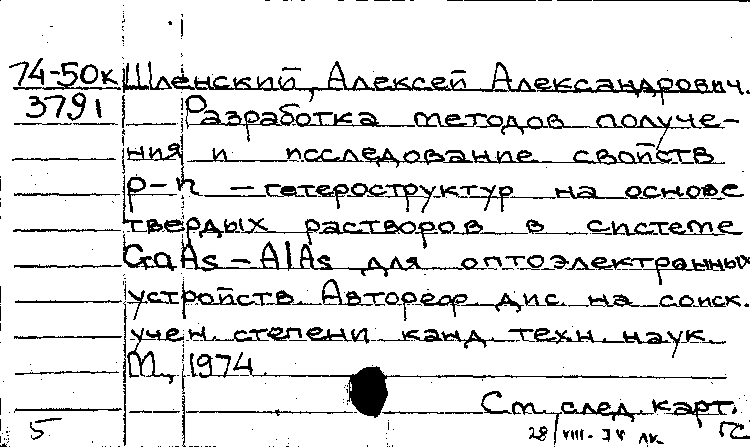 74-50к Шленский, Алексей Александрович.
3791 Разработка методов получе-
ния и исследование свойств
p-n -гетероструктур на основе
твердых растворов в системе
GaAs-AlAs для оптоэлектронных
устройств. Автореф дис. на соиск.
учен. степени канд. техн. наук.
М., 1974.
См. след. карт.
5 28/VIII-74 ЛК. ГС